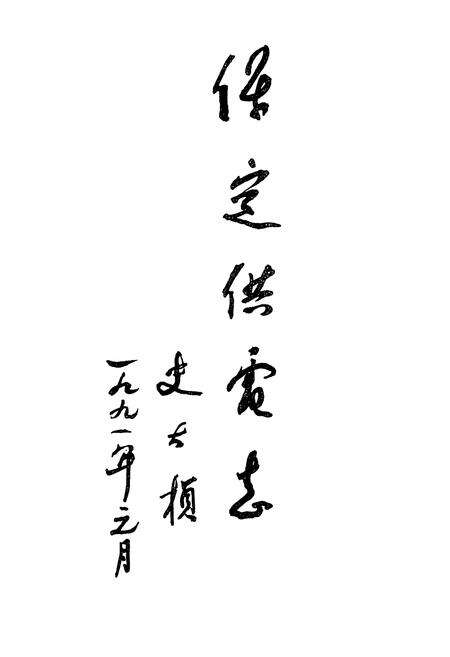 保定供電志
史大楨
一九九一年元月